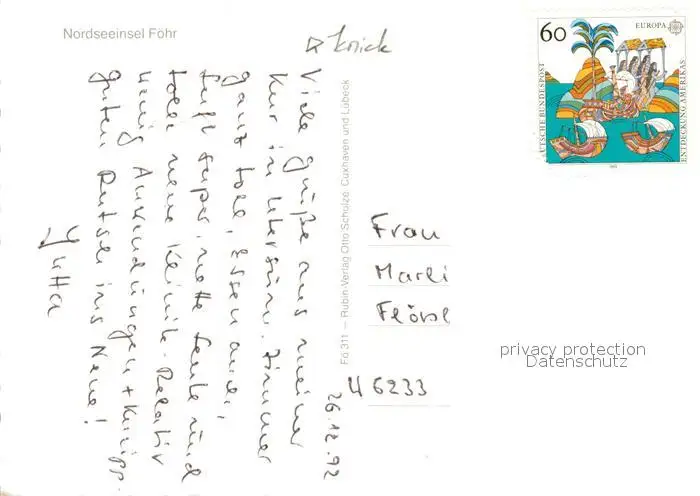 Nordseeinsel Föhr
Knick
60
EUROPA
DEUTSCHE BUNDESPOST
ENTDECKUNG AMERIKAS
26.12.92
Viele Grüße aus meiner
Kur in Utersum. Zimmer
ganz toll, Essen auch,
Luft super, nette Leute und
tolle neue Klinik. Relativ
wenig Anwendungen +
Guten Rutsch ins Neue!
Jutta
Fö 311 — Rubin-Verlag Otto Schulze Cuxhaven und Lübeck
Frau
Marli
W 6233
privacy protection
Datenschutz